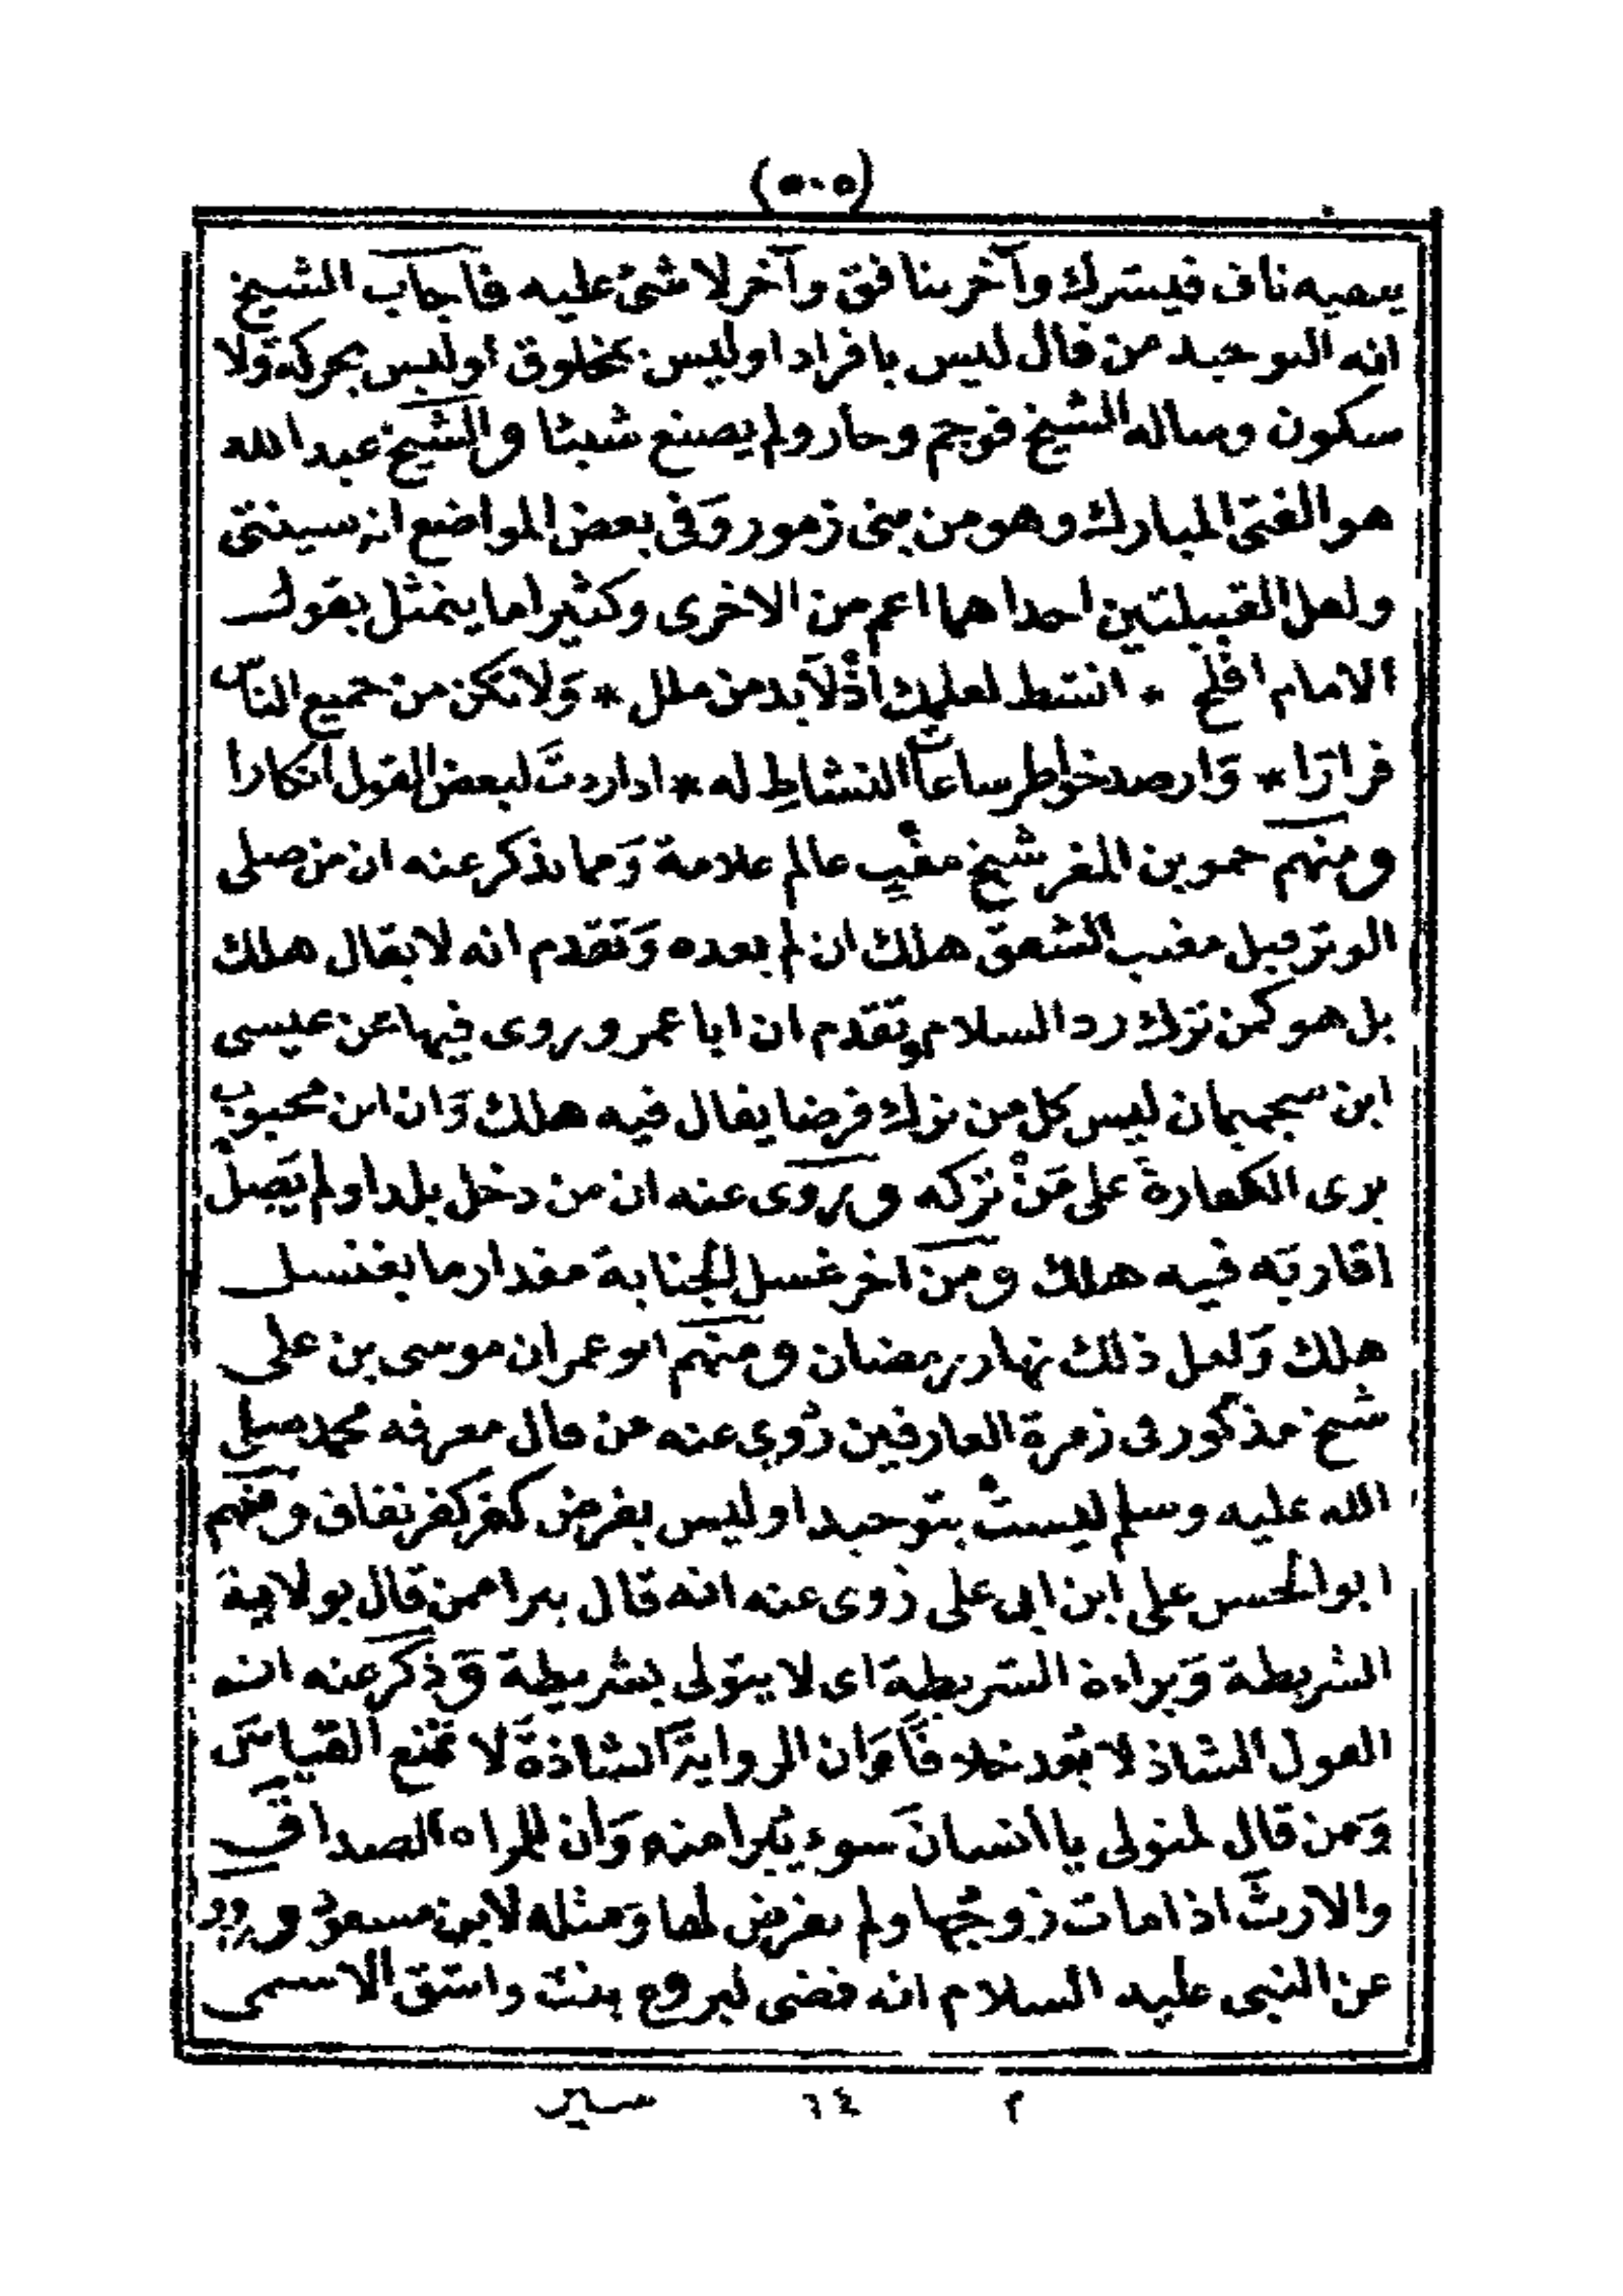 (٥٠٥)
يصيه ناف فيشرك وآخر ينافق وآخر لا شئ عليه فاجاب الشيخ
انه التوحيد من قال ليس بافراد اوليس بمخلوق أوليس بحركة وَلا
سكون وساله الشيخ فوجم وحار ولم يصنع شيئا والشيخ عبد الله
هو الفتى المبارك وهو من بنى زمور وَفى بعض المواضع انه سينتى
ولعل القبيلتين احداهما اعم من الاخرى وكثيرا ما يتمثل بقول
الامام افلح * انشط لعلمك اذْ لَابد من ملل * وَلا تكن من جميع الناس
فرارًا * وَارصد خواطر ساعات النشاطِ له * اذا اردتَ لبعض القول انكارا
ومنهم حمو بن المغر شيخ مفْتٍ عالم علامة وَمما يذكر عنه ان من صلى
الوتر قبل مغيب الشفق هلك ان لم يعده وَتقدم انه لا يقال هلك
بل هو كمن ترك رد السلام وتقدم ان ابا عمرو روى فيها عن عيسى
ابن سجميمان ليس كل من ترك فرضا يقال فيه هلك وَان ابن محبوب
يرى الكفارة على مَنْ تركه ويروى عنه ان من دخل بلدا ولم يَصِلْ
اقاربَه فيه هلك ومن اخر غسل الجنابة مقدار ما يغتسل
هلك وَلعل ذلك نهار رمضان ومنهم ابو عمران موسى بن على
شيخ مذكور فى زمرة العارفين رُوِى عنه من قال معرفه محمد صلى
الله عليه وسلم ليستْ بتوحيد اوليس بفرض كفر كفر نفاق ومنهم
ابو الحسن على ابن ابى على رُوى عنه انه قال يبرا ممن قال بولاية
الشريطة وَبراءة الشريطة اى لا يتولى بشريطة وَذكر عنه انه
القول الشاذ لا يُعد خلافًا وَان الرواية الشاذةَ لا تمنع القياسَ
وَمن قال لمتولى يا انسانَ سوء يُبرا منه وَأن للمراة الصداقَ
والارثَ اذا مات زوجُها ولم يفرض لها وَمثله لابن مسعودْ وروى
عن النبى عليه السلام انه قضى لبروع بنت واشق الاسمى
٢ ١٤ سير